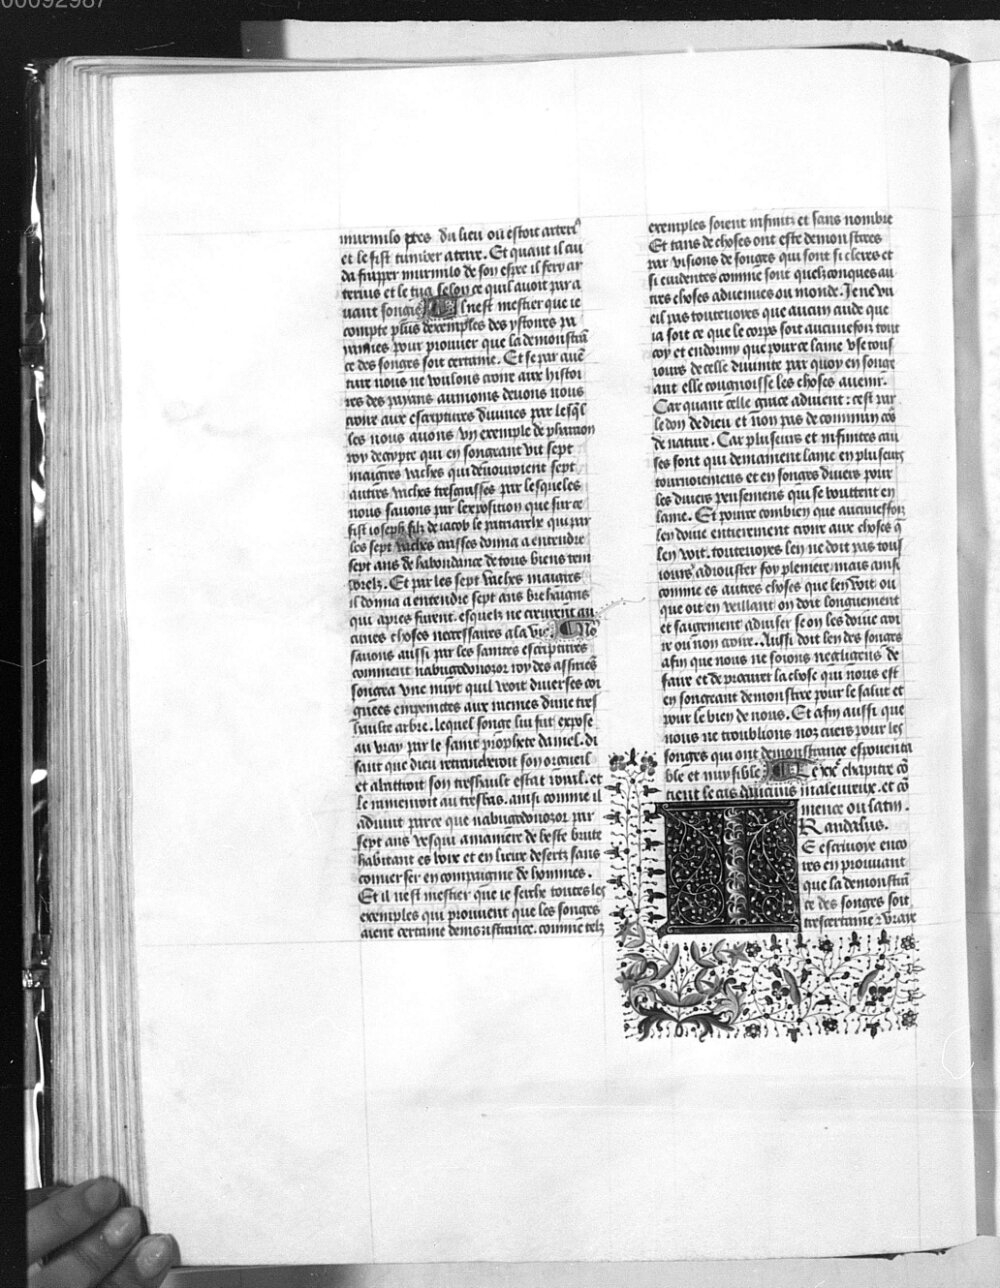 00092987
murmilo pres du lieu ou estoit arteri⁹
et le fist tumber a terre. Et quant il cui
da fraper murmilo de son espee il fery ar
terius et le tua selon ce quil auoit par a
uant songie Il nest mestier que ie
compte plus dexemples des ystoires pa
yennes pour prouuer que la demonstrā
ce des songes soit certaine. Et se par auē
ture nous ne voulons croire aux histoi
res des payans aumoins deuons nous
croire aux escriptures diuines par lesq̄l
les nous auons vn exemple de pharaon
roy degypte qui en songeant vit sept
maigres vaches qui deuouroient sept
autres vaches tresgrasses par lesqueles
nous sauons par lexposition que sur ce
fist ioseph filz de iacob le patriarche que par
les sept vaches crasses donna a entendre
sept ans de habondance de tous biens tem
porelz. Et par les sept vaches maigres
il donna a entendre sept ans brehaigns
qui apres furent. esquelz ne creurent au
cunes choses necessaires a la vie. No⁹
sauons aussi par les saintes escriptures
comment nabugodonozor roy des assiries
songea vne nuyt quil veoit diuerses coi
gnees empraintes aux racines dune tres
haulte arbre. lequel songe lui fut expose
au vray par le saint prophete daniel. di
sant que dieu retrancheroit son orgueil
et abatroit son treshault estat royal. et
le rameneroit au tresbas. ainsi comme il
aduint parce que nabugodonozor par
sept ans vesqui a maniere de beste brute
habitant es bois et en lieux desertz sans
conuerser en compaignie de hommes.
Et il nest mestier que ie serche toutes les
exemples qui prouuent que les songes
aient certaine demonstrance. comme telz
exemples soient infinitz et sans nombre
Et tans de choses ont este demonstrees
par visions de songes qui sont si cleres et
si euidentes comme sont quelzconques au
tres choses aduenues ou monde. Je ne vu
eil pas toutesuoyes que aucun cuide que
ia soit ce que le corps soit aucunefois tout
coy et endormy que pour ce lame vse tous
iours de celle diuinite par quoy en songe
ant elle congnoisse les choses auenir.
Car quant celle grace aduient : cest par
le don de dieu et non pas de commun cōs
de nature. Car plusieurs et infinites cau
ses sont qui demainent lame en plusieurs
tournoiemens et en songes diuers pour
les diuers pensemens qui se boutent en
lame. Et pource combien que aucuneffois
len doiue entierement croire aux choses q̄
len voit. toutesuoyes len ne doit pas tous
iours adiouster foy pleniere. mais ainsi
comme es autres choses que len voit ou
que oit en veillant on doit longuement
et saigement aduiser se on les doiue croi
re ou non croire. Aussi doit len des songes
afin que nous ne soions negligens de
faire et de procurer la chose qui nous est
en songeant demonstree pour le salut et
pour le bien de nous. Et afin aussi que
nous ne troublions noz cuers pour les
songes qui ont demonstrance espouenta
ble et nuysible Le xx.ͤ chapitre cō
tient le cas daucuns maleureux. et cō
mence ou latin.
Randalus.
E escriuoye enco
res en prouuant
que la demonstrā
ce des songes soit
trescertaine et vraie